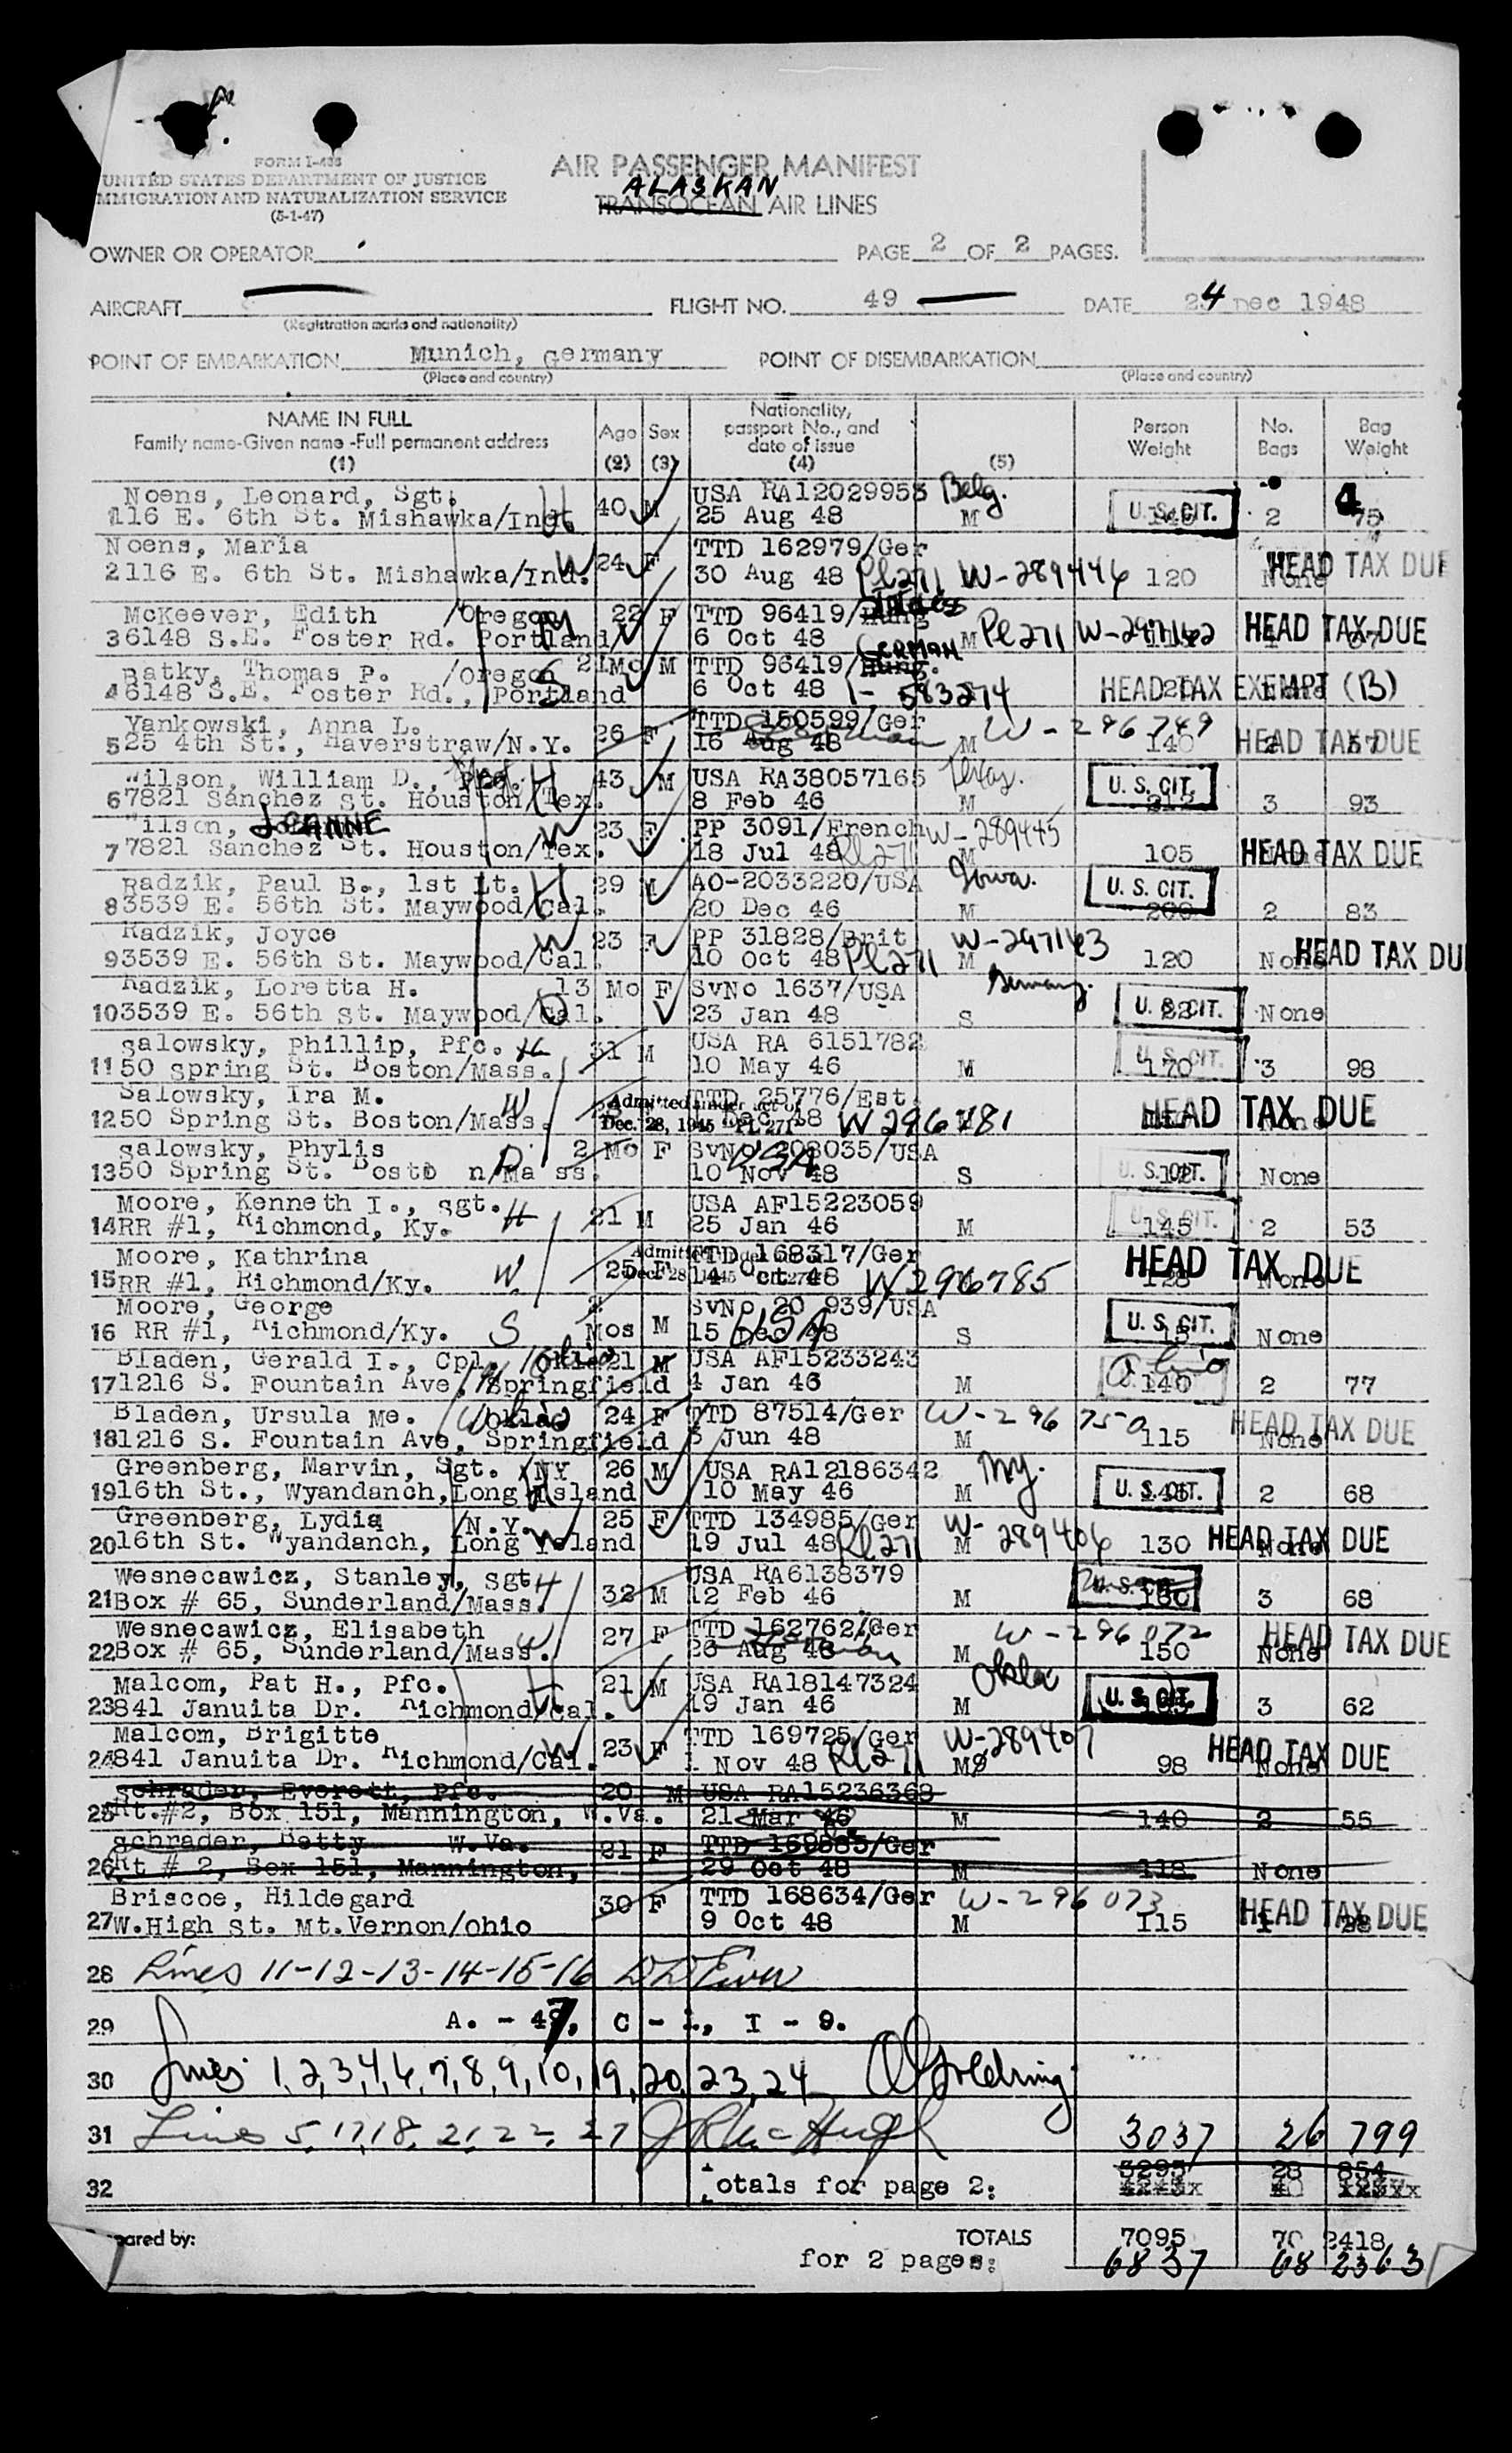 FORM I-433
UNITED STATES DEPARTMENT OF JUSTICE
IMMIGRATION AND NATURALIZATION SERVICE
(5-1-47)
AIR PASSENGER MANIFEST
ALASKAN
TRANSOCEAN AIR LINES
OWNER OR OPERATOR PAGE 2 OF 2 PAGES.
AIRCRAFT FLIGHT NO. 49 DATE 24 Dec 1948
(Registration marks and nationality)
POINT OF EMBARKATION Munich, Germany POINT OF DISEMBARKATION
(Place and country) (Place and country)
NAME IN FULL
Family name-Given name -Full permanent address
(1)
Age (2) Sex (3)
Nationality, passport No., and date of issue (4)
(5)
Person Weight No. Bags Bag Weight
Noens, Leonard, Sgt. 40 M USA RA12029953 Belg. U. S. CIT.
1 116 E. 6th St. Mishawka/Ind. H 25 Aug 48 M 2 75
Noens, Maria W 24 F TTD 162979/Ger HEAD TAX DUE
2 116 E. 6th St. Mishawka/Ind. 30 Aug 48 Pl271 W-289446 120 None
McKeever, Edith /Oregon 22 F TTD 96419/Hung
3 6148 S.E. Foster Rd. Portland/ 6 Oct 48 M Pl271 HEAD TAX DUE
Batky, Thomas P. /Oregon S 21Mo M TTD 96419/Hung. GERMAN
4 6148 S.E. Foster Rd., Portland 6 Oct 48 I- 583274 HEAD TAX EXEMPT (B)
Yankowski, Anna L. 26 F TTD 150599/Ger W-296749
5 25 4th St., Haverstraw/N.Y. 16 Aug 48 M 140 HEAD TAX DUE
Wilson, William D., H 43 M USA RA38057165 Texas. U. S. CIT.
6 7821 Sanchez St. Houston/Tex. 8 Feb 46 M 212 3 93
Wilson, JEANNE W 23 F PP 3091/French W-289445
7 7821 Sanchez St. Houston/Tex. 18 Jul 48 Pl271 M 105 HEAD TAX DUE
Radzik, Paul B., 1st Lt. H 29 M AO-2033220/USA Iowa. U. S. CIT.
8 3539 E. 56th St. Maywood/Cal. 20 Dec 46 M 200 2 83
Radzik, Joyce W 23 F PP 31828/Brit W-297163
9 3539 E. 56th St. Maywood/Cal. 10 Oct 48 Pl271 M 120 None HEAD TAX DUE
Radzik, Loretta H. 13 Mo F SvNo 1637/USA Germany. U. S. CIT.
10 3539 E. 56th St. Maywood/Cal. D 23 Jan 48 S None
Salowsky, Phillip, Pfc. H 31 M USA RA 6151782 U. S. CIT.
11 50 Spring St. Boston/Mass. 10 May 46 M 170 3 98
Salowsky, Ira M. W Admitted under act of TTD 25776/Est.
12 50 Spring St. Boston/Mass. Dec. 28, 1945 "PL 271" Dec 48 W296781 HEAD TAX DUE None
Salowsky, Phylis D. 2 Mo F SvNo 208035/USA
13 50 Spring St. Bosto n/Ma ss. 10 Nov 48 USA S U. S. CIT. None
Moore, Kenneth I., Sgt. H 21 M USA AF15223059 U. S. CIT.
14 RR #1, Richmond, Ky. 25 Jan 46 M 145 2 53
Moore, Kathrina W. 25 F TTD 168317/Ger
15 RR #1, Richmond/Ky. 14 Oct 48 W296785 128 None HEAD TAX DUE
Moore, George 2 Mos M SvNo 20 939/USA U. S. CIT.
16 RR #1, Richmond/Ky. S 15 Dec 48 USA S None
Bladen, Gerald I., Cpl. /Ohio 21 M USA AF15233243 Ohio
17 1216 S. Fountain Ave, Springfield 4 Jan 46 M 140 2 77
Bladen, Ursula Me. W 24 F TTD 87514/Ger W-296750 HEAD TAX DUE
18 1216 S. Fountain Ave, Springfield 3 Jun 48 M 115 None
Greenberg, Marvin, Sgt. /NY 26 M USA RA12186342 Ny. U. S. CIT.
19 16th St., Wyandanch, Long Island 10 May 46 M 2 68
Greenberg, Lydia /N.Y. W 25 F TTD 134985/Ger W-289406
20 16th St. Wyandanch, Long Island 19 Jul 48 Pl271 M 130 None HEAD TAX DUE
Wesnecawicz, Stanley, Sgt H 32 M USA RA6138379 U. S. CIT.
21 Box # 65, Sunderland/Mass. 12 Feb 46 M 180 3 68
Wesnecawicz, Elisabeth W 27 F TTD 162762/Ger W-296072 HEAD TAX DUE
22 Box # 65, Sunderland/Mass. 26 Aug 48 M 150 None
Malcom, Pat H., Pfc. H 21 M USA RA18147324 Okla U. S. CIT.
23 841 Januita Dr. Richmond/Cal. 19 Jan 46 M 3 62
Malcom, Brigitte W 23 F TTD 169725/Ger W-289407
24 841 Januita Dr. Richmond/Cal. 1 Nov 48 Pl271 M 98 None HEAD TAX DUE
Schrader, Everett, Pfc. 20 M USA RA15236368
25 Rt.#2, Box 151, Mannington, W.Va. 21 Mar 46 M 140 2 55
Schrader, Betty W.Va. 21 F TTD 169085/Ger
26 Rt # 2, Box 151, Mannington, 29 Oct 48 M 118 None
Briscoe, Hildegard 30 F TTD 168634/Ger W-296073 HEAD TAX DUE
27 W.High St. Mt.Vernon/Ohio 9 Oct 48 M 115 1 28
28 Lines 11-12-13-14-15-16
29 A. - 47, C - 1, I - 9.
30 Lines 1,2,3,4,6,7,8,9,10,19,20,23,24 Goldring
31 Lines 5,17,18,21,22,27 3037 26 799
3295 28 854
32 Totals for page 2:
Prepared by: TOTALS 7095 70 2418
for 2 pages: 6837 68 2363